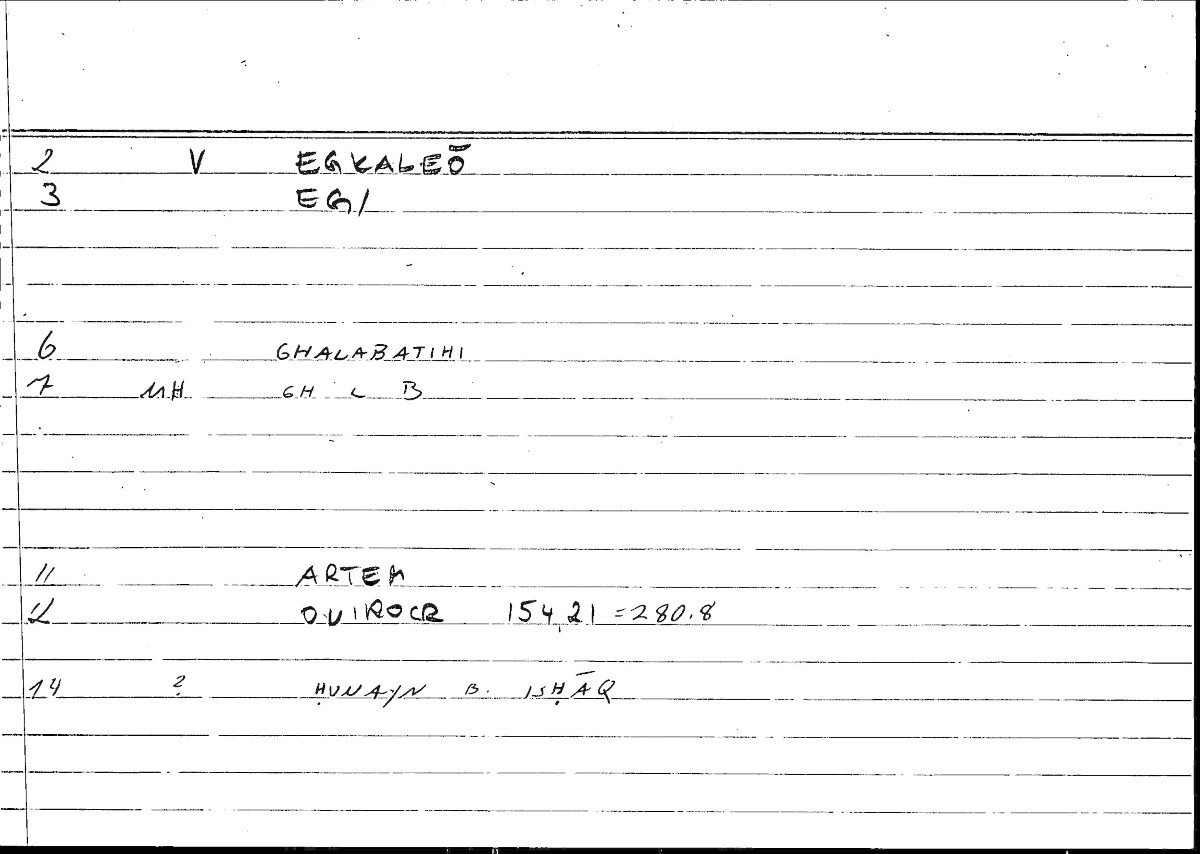 2 V EGKALEŌ
3 EG/
6 GHALABATIHI
7 MH GH L B
11 ARTEM
12 OVIROCR 154,21 =280.8
14 ? ḤUNAYN B. ISḤĀQ